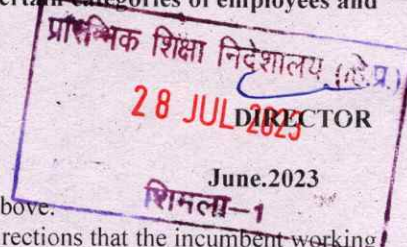 certain categories of employees and
प्रारम्भिक शिक्षा निदेशालय (हि.प्र.)
28 JUL 2023
DIRECTOR
June.2023
शिमला-1
bove.
rections that the incumbent working